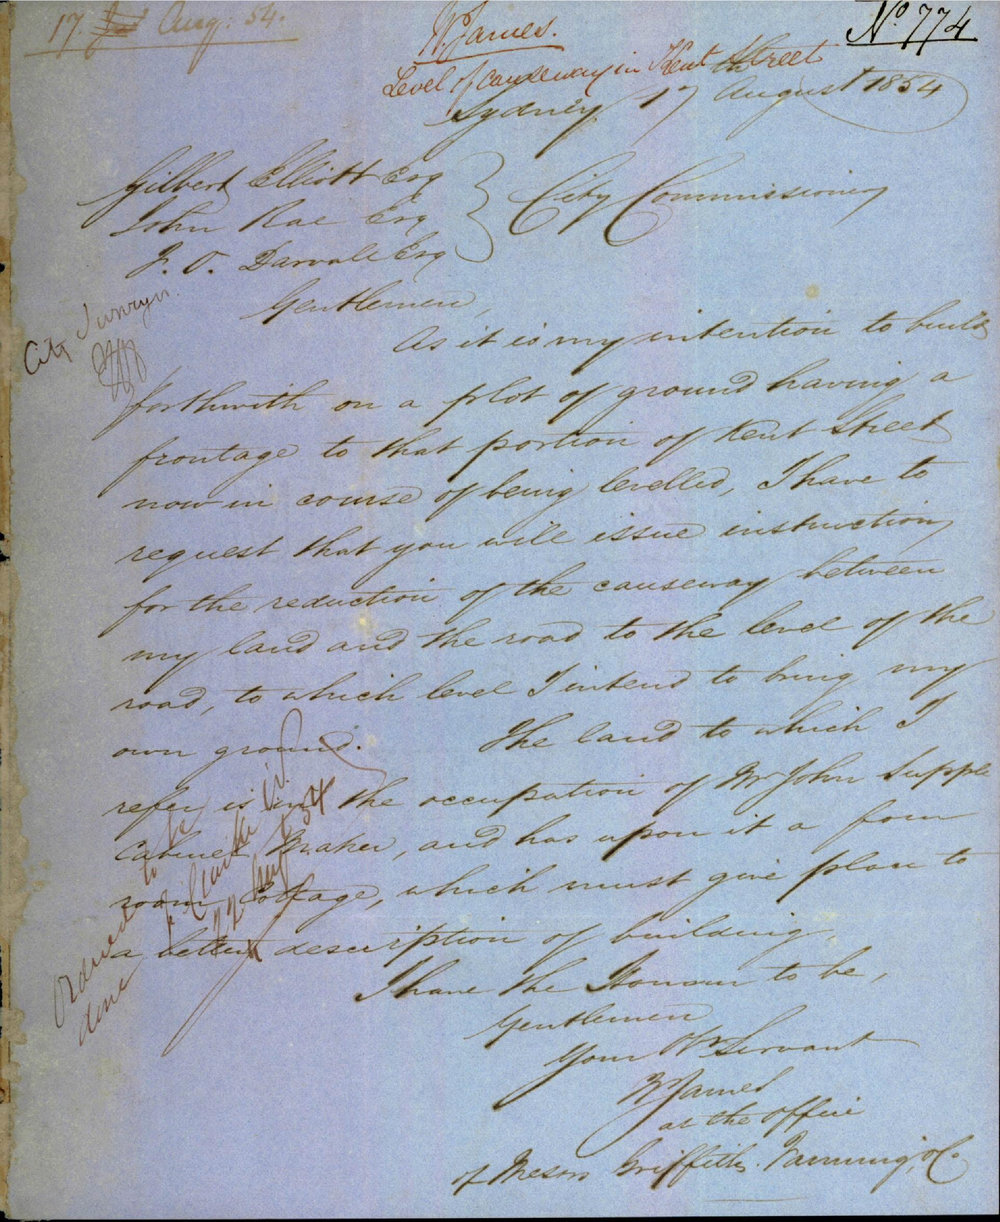 17. Aug: 54.
No. 774
W. James.
Level of Causeway in Kent Street
Sydney 17th August 1854
Gilbert Elliott Esq
John Rae Esq
F. O. Darvall Esq
City Commissioners
Gentlemen,
City Surveyor
As it is my intention to build
forthwith on a plot of ground having a
frontage to that portion of Kent Street
now in course of being levelled, I have to
request that you will issue instructions
for the reduction of the causeway between
my land and the road to the level of the
road, to which level I intend to bring my
own ground. The land to which I
refer is in the occupation of Mr John Supple
Cabinet Maker, and has upon it a four
room Cottage, which must give place to
a better description of building
I have the Honour to be,
Gentlemen
Your Obt Servant
W James
at the office
of Messrs Griffiths Fanning & Co.
Ordered to be
done
22 Aug 54